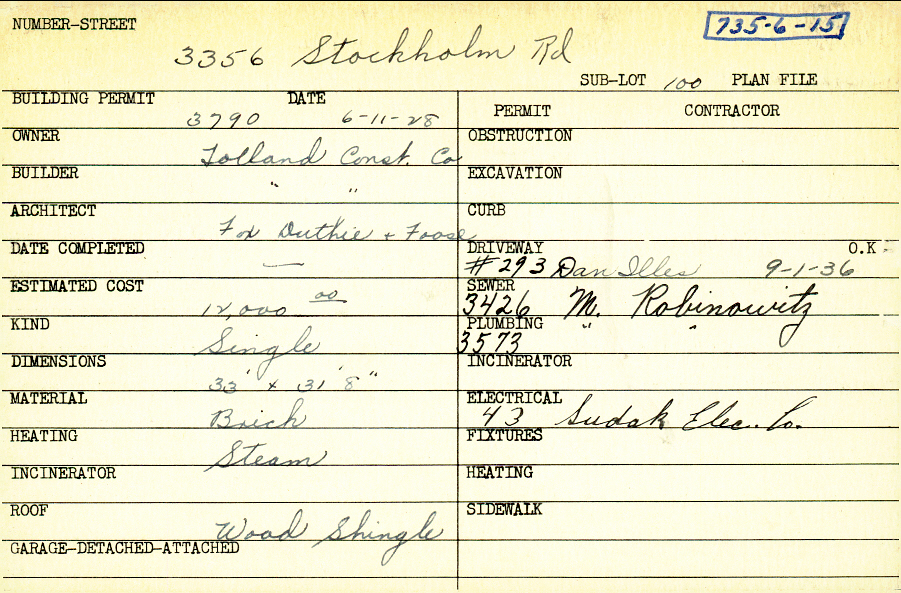 NUMBER-STREET
735-6-15
3356 Stockholm Rd
SUB-LOT 100 PLAN FILE
BUILDING PERMIT DATE
3790 6-11-28
PERMIT CONTRACTOR
OWNER
Tolland Const. Co
BUILDER
" "
ARCHITECT
Fox Duthie + Foose
DATE COMPLETED
—
ESTIMATED COST
12,000 00
KIND
Single
DIMENSIONS
33' x 31' 8"
MATERIAL
Brick
HEATING
Steam
INCINERATOR
ROOF
Wood Shingle
GARAGE-DETACHED-ATTACHED
OBSTRUCTION
EXCAVATION
CURB
DRIVEWAY O.K.
#293 Dan Illes 9-1-36
SEWER
3426 M. Robinowitz
PLUMBING " "
3573
INCINERATOR
ELECTRICAL
43 Sudak Elec. Co.
FIXTURES
HEATING
SIDEWALK